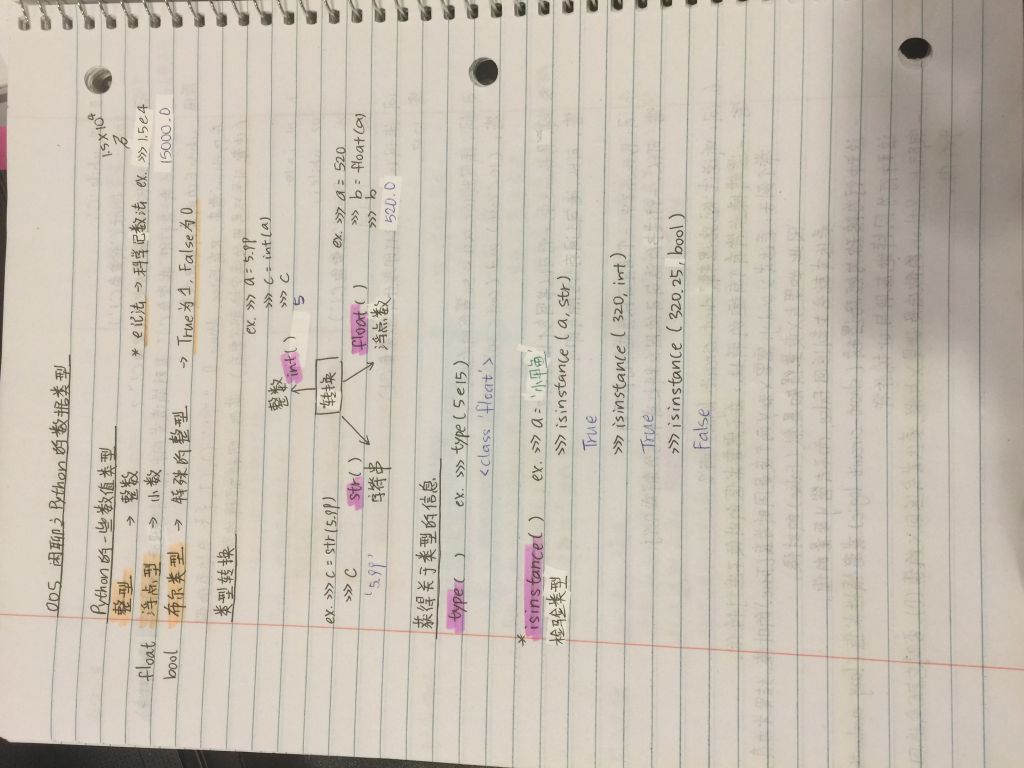 005 闲聊之Python的数据类型
Python的一些数值类型
整型 → 整数 * e记法 → 科学记数法 ex. >>> 1.5e4
1.5×10⁴
float 浮点型 → 小数 15000.0
bool 布尔类型 → 特殊的整型 → True为1, False为0
类型转换
ex. >>> a = 5.99
>>> c = int(a)
>>> c
5
整数 int( )
转换
ex. >>> c = str(5.99)
>>> c
'5.99'
str( )
字符串
float( )
浮点数
ex. >>> a = 520
>>> b = float(a)
>>> b
520.0
获得关于类型的信息
type( ) ex. >>> type(5e15)
<class 'float'>
* isinstance( ) ex. >>> a = '小甲鱼'
检验类型 >>> isinstance(a, str)
True
>>> isinstance(320, int)
True
>>> isinstance(320.25, bool)
False